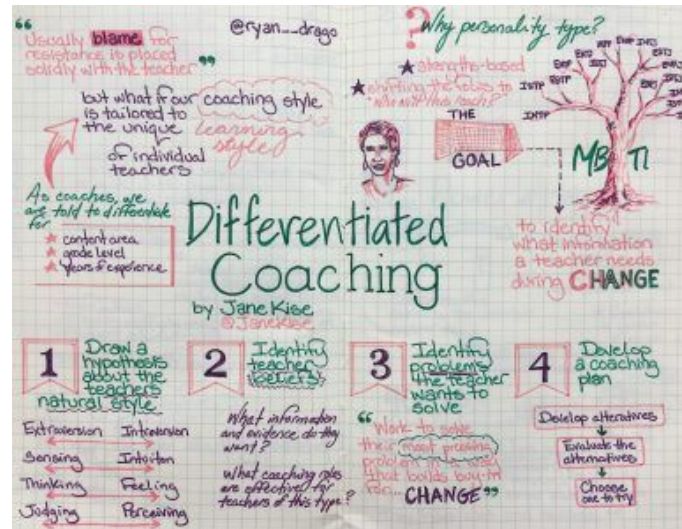 “ Usually blame for
resistance is placed
solidly with the teacher ”
@ryan__drago
but what if our coaching style
is tailored to
the unique learning
style
of individual
teachers
As coaches, we
are told to differentiate
for
content area
grade level
years of experience
? Why personality type?
strengths-based
shifting the focus to
THE
GOAL
ISTP
INTP
ESTP
ENTJ
MB TI
to identify
what information
a teacher needs
during CHANGE
Differentiated
Coaching
by Jane Kise
@JaneKise
1 Draw a
hypothesis
about the
teachers
natural style
Extraversion Introversion
Sensing Intuition
Thinking Feeling
Judging Perceiving
2 Identify
teacher
beliefs
What information
and evidence do they
want?
What coaching roles
are effective for
teachers of this type?
3 Identify
problems
the teacher
wants to
solve
“ Work to solve
their most pressing
problem in a way
that builds buy-in
for... CHANGE ”
4 Develop
a coaching
plan
Develop alteratives
Evaluate the
alternatives
Choose
one to try